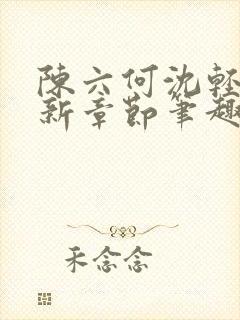 陳六何沈輕
新章節筆趣
禾念念